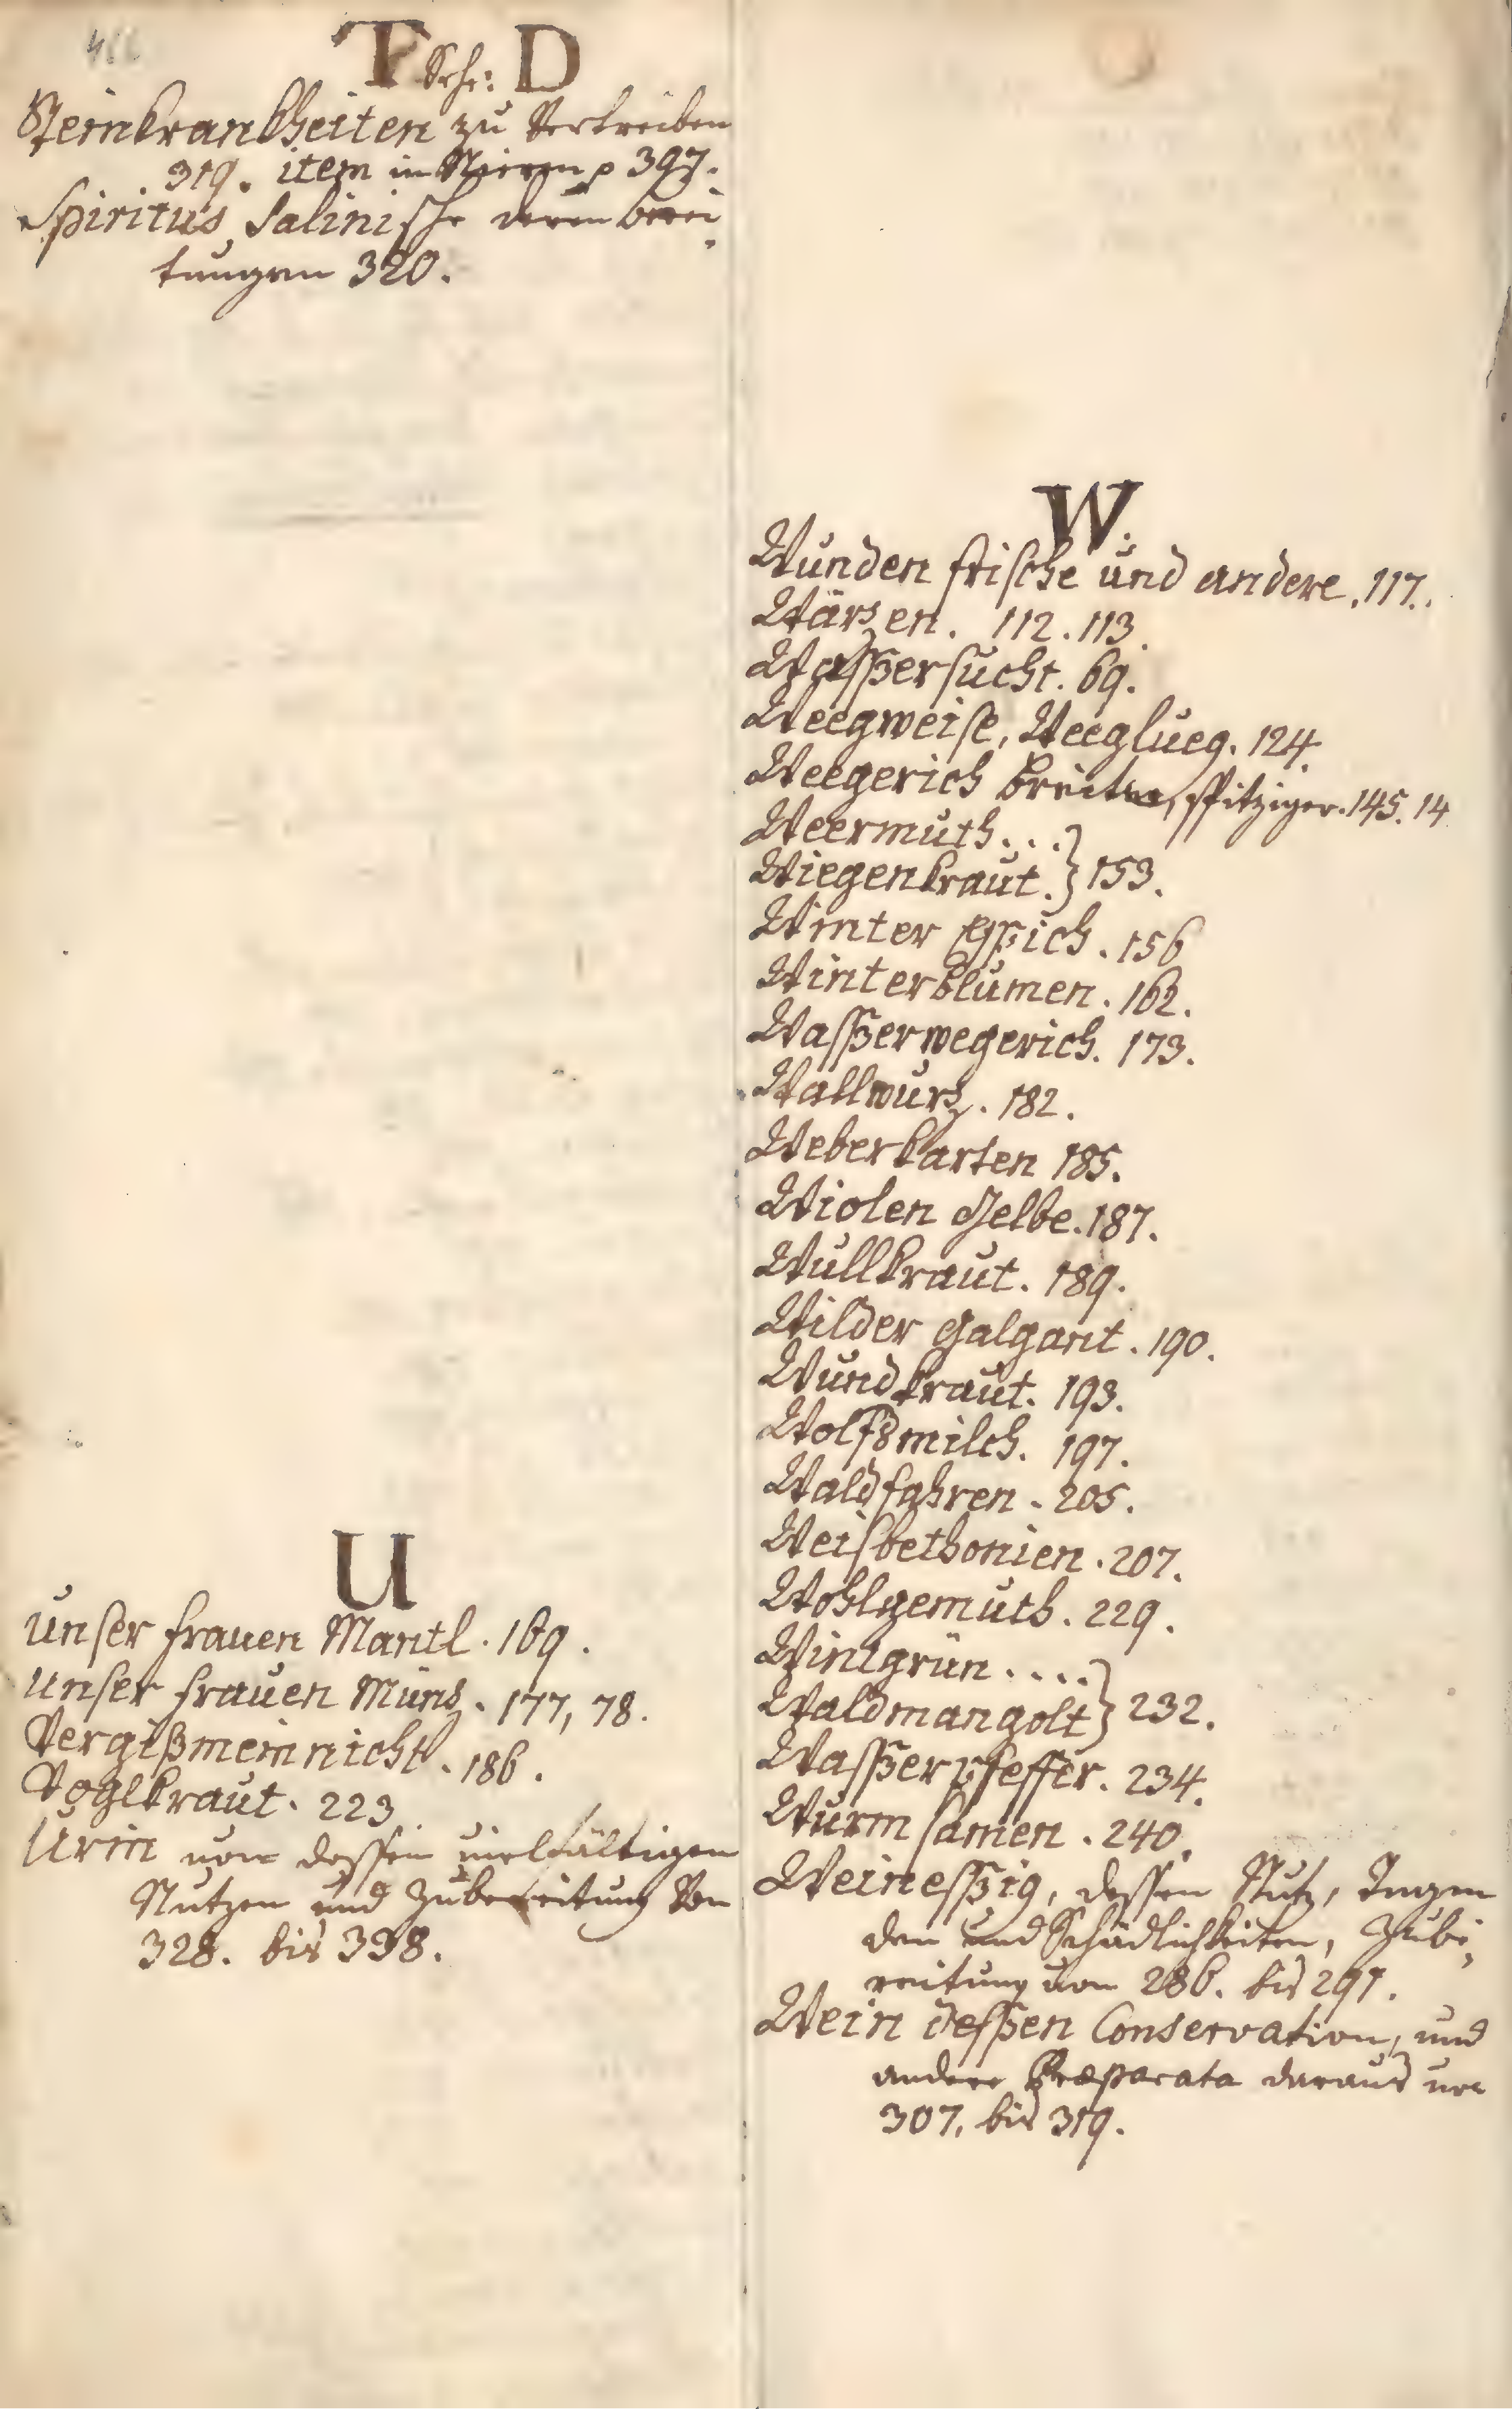 T Seh: D
Steinkrankheiten zu Vertreiben
319. item in Nieren p 397.
Spiritus Salinische deren berei„
tungen 320.
U
Unser frauen Mantl. 169.
Unser frauen Müns. 177, 78.
Vergißmein nicht. 186.
Voglkraut. 223
Urin von dessen vielfältigen
Nutzen und Zubereitung Von
328. bis 338.
W.
Wunden frische und andere. 117.
Wärzen. 112. 113.
Waßersucht. 69.
Weegweise, Weeglueg. 124.
Weegerich breiter, spitziger. 145. 14
Weermuth...
Wiegenkraut. } 153.
Winter Eppich. 156
Winterblumen. 162.
Waßerwegerich. 173.
Wallwurz. 182.
Weberkarten 185.
Violen Gelbe. 187.
Wullkraut. 189.
Wilder Galgant. 190.
Wundkraut. 193.
Wolfsmilch. 197.
Waldfahren. 205.
Weisbethonien. 207.
Wohlgemuth. 229.
Wintgrün....
Waldmangolt } 232.
Waßerpfeffer. 234.
Wurm samen. 240.
Weineßig, dessen Nutz, Tugen
den und Schädlichkeiten, Zube„
reitung von 286. bis 291.
Wein deßen Conservation, und
andere Præparata daraus von
307. bis 319.